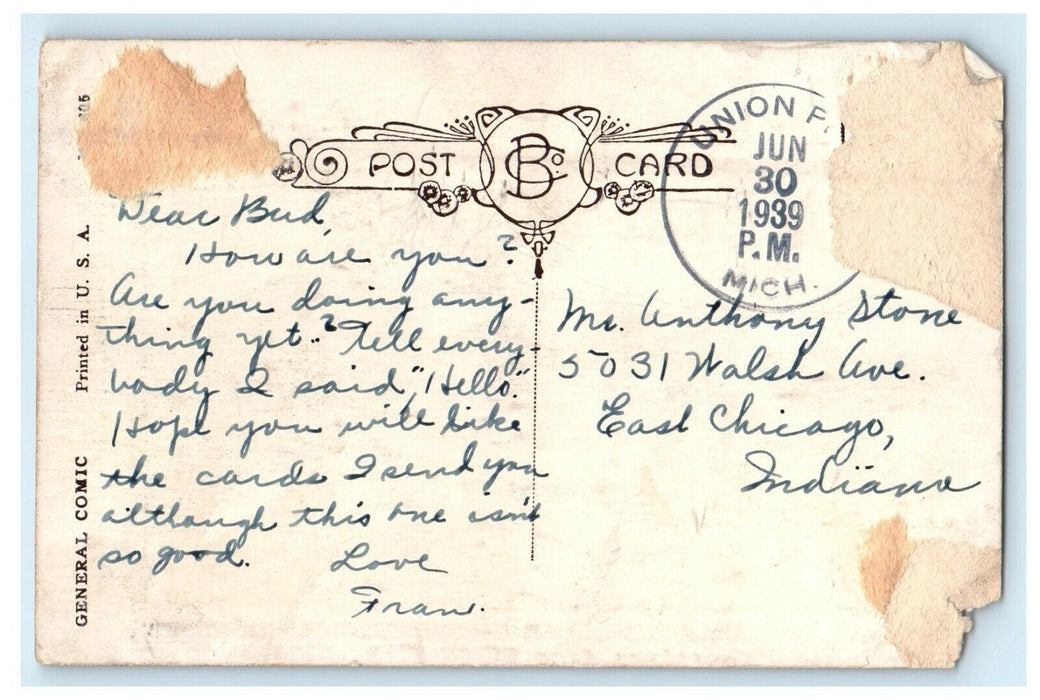 POST CARD
BCo
UNION
JUN
30
1939
P.M.
MICH.
Dear Bud,
How are you?
Are you doing any-
thing yet.? Tell every-
body I said, "Hello."
Hope you will like
the cards I send you
although this one isn't
so good. Love
Fran.
Mr. Anthony Stone
5031 Walsh Ave.
East Chicago,
Indiana
GENERAL COMIC Printed in U. S. A.